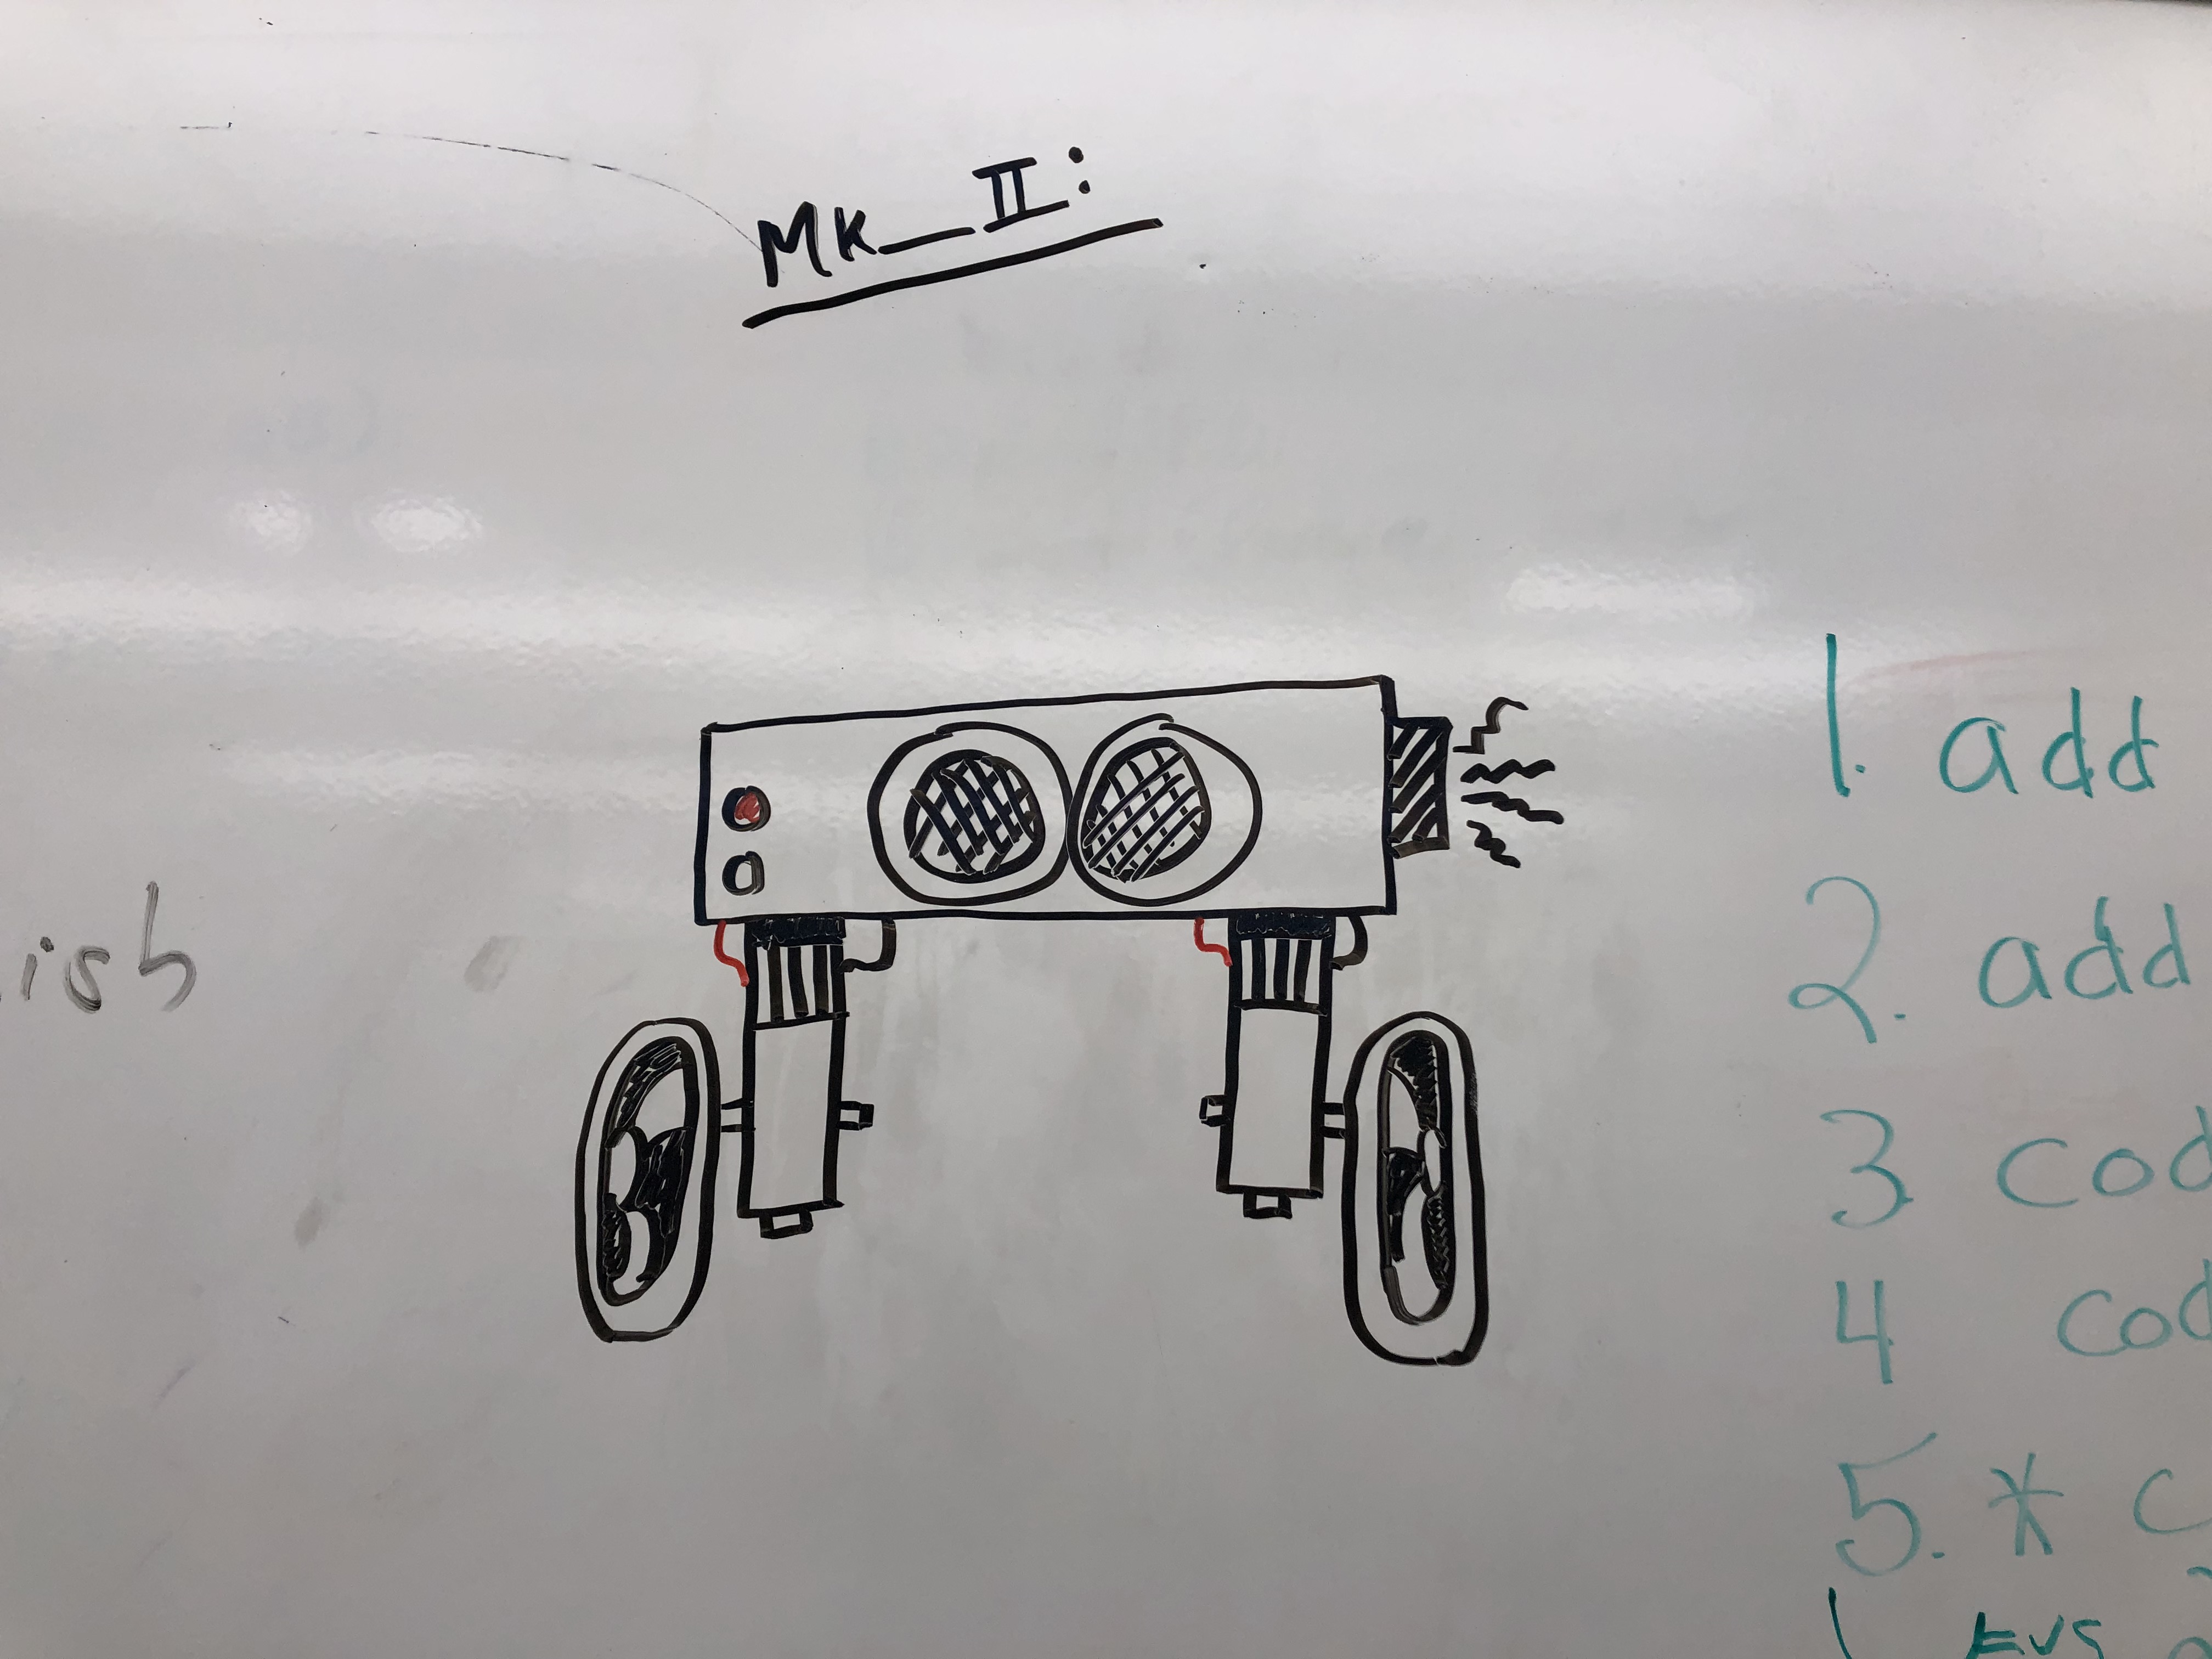 Mk__II:
ish
1. add
2. add
3. cod
4 cod
5. * c